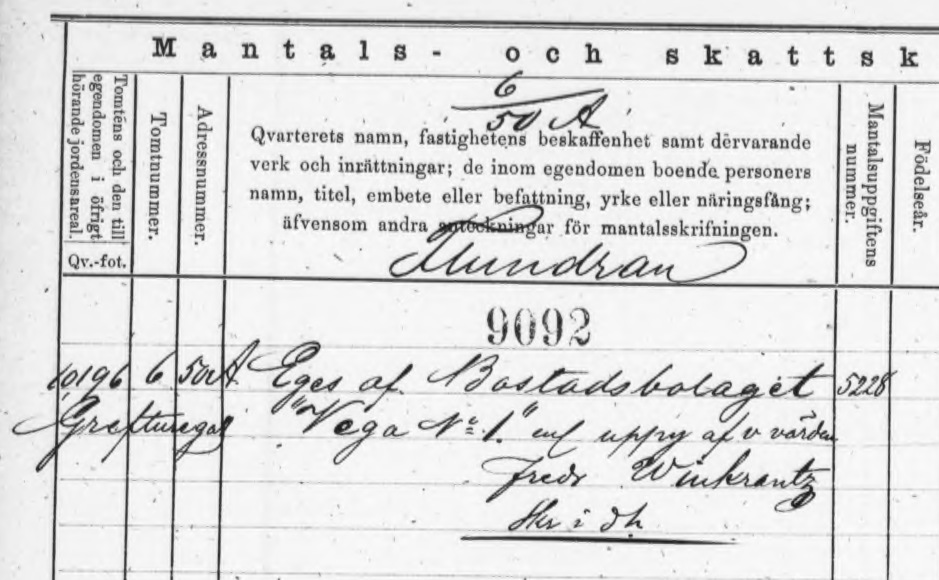 Mantals- och skattsk
Tomtens och den till
egendomen i öfrigt
hörande jordensareal.
Qv.-fot.
Tomtnummer.
Adressnummer.
6
50 A
Qvarterets namn, fastighetens beskaffenhet samt dervarande
verk och inrättningar; de inom egendomen boende personers
namn, titel, embete eller befattning, yrke eller näringsfång;
äfvensom andra anteckningar för mantalsskrifningen.
Mantalsuppgiftens
nummer.
Födelseår.
Mundran
9092
10196 6 50A Eges af Bostadsbolaget 5228
Greftureg "Vega No 1." enl uppg af v värden
Fredr Winkrantz
Skr i dh